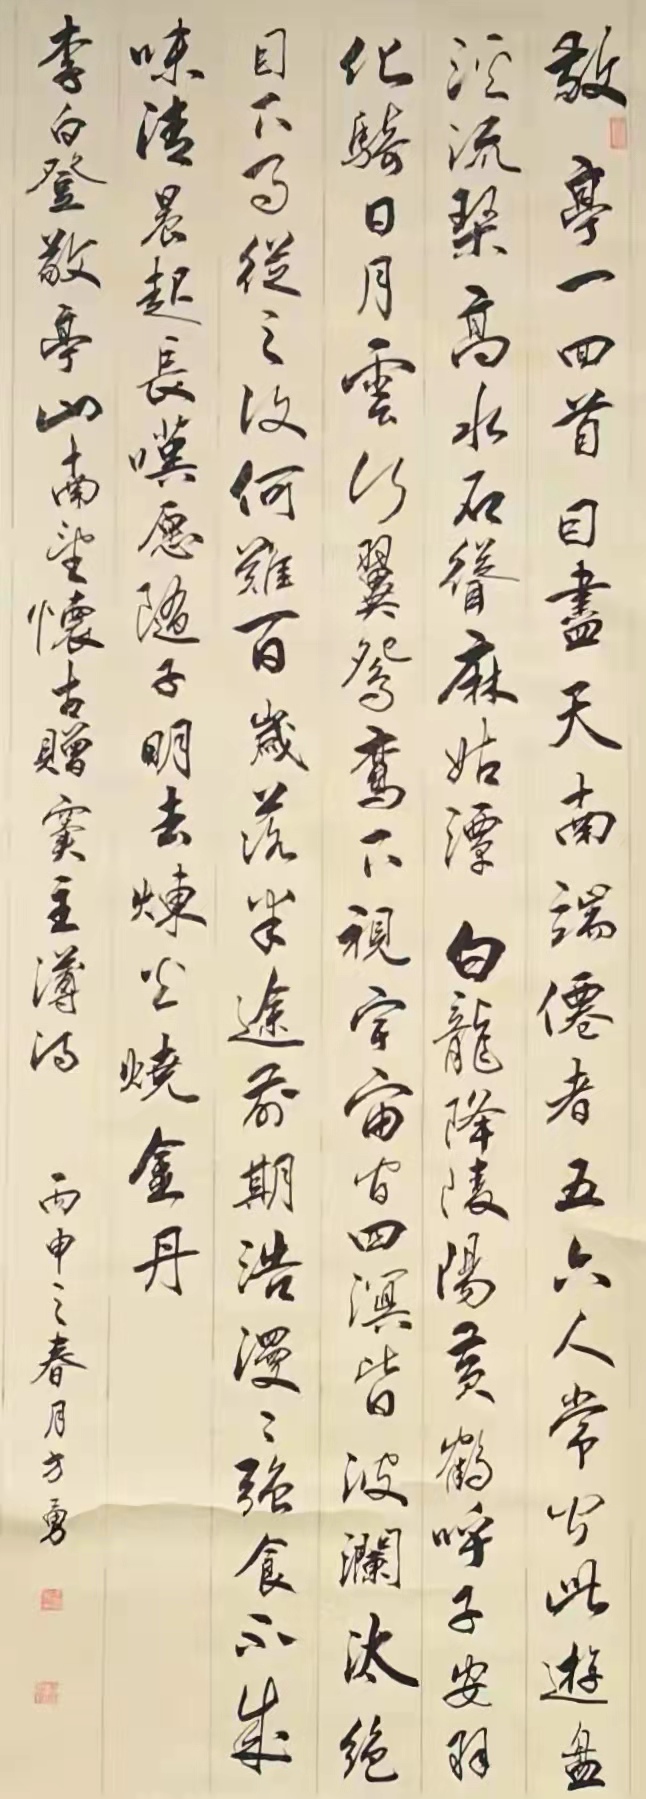 敬亭一回首目盡天南端僊者五六人常聞此遊盤
溪流琴高水石聳麻姑潭白龍降陵陽黃鶴呼子安羽
化騎日月雲行翼鴛鸞下視宇宙間四溟皆波瀾汰絕
目下事從之復何難百歲落半途前期浩漫漫強食不成
味清晨起長嘆愿隨子明去煉火燒金丹
李白登敬亭山南望懷古贈竇主薄詩
丙申之春月方勇